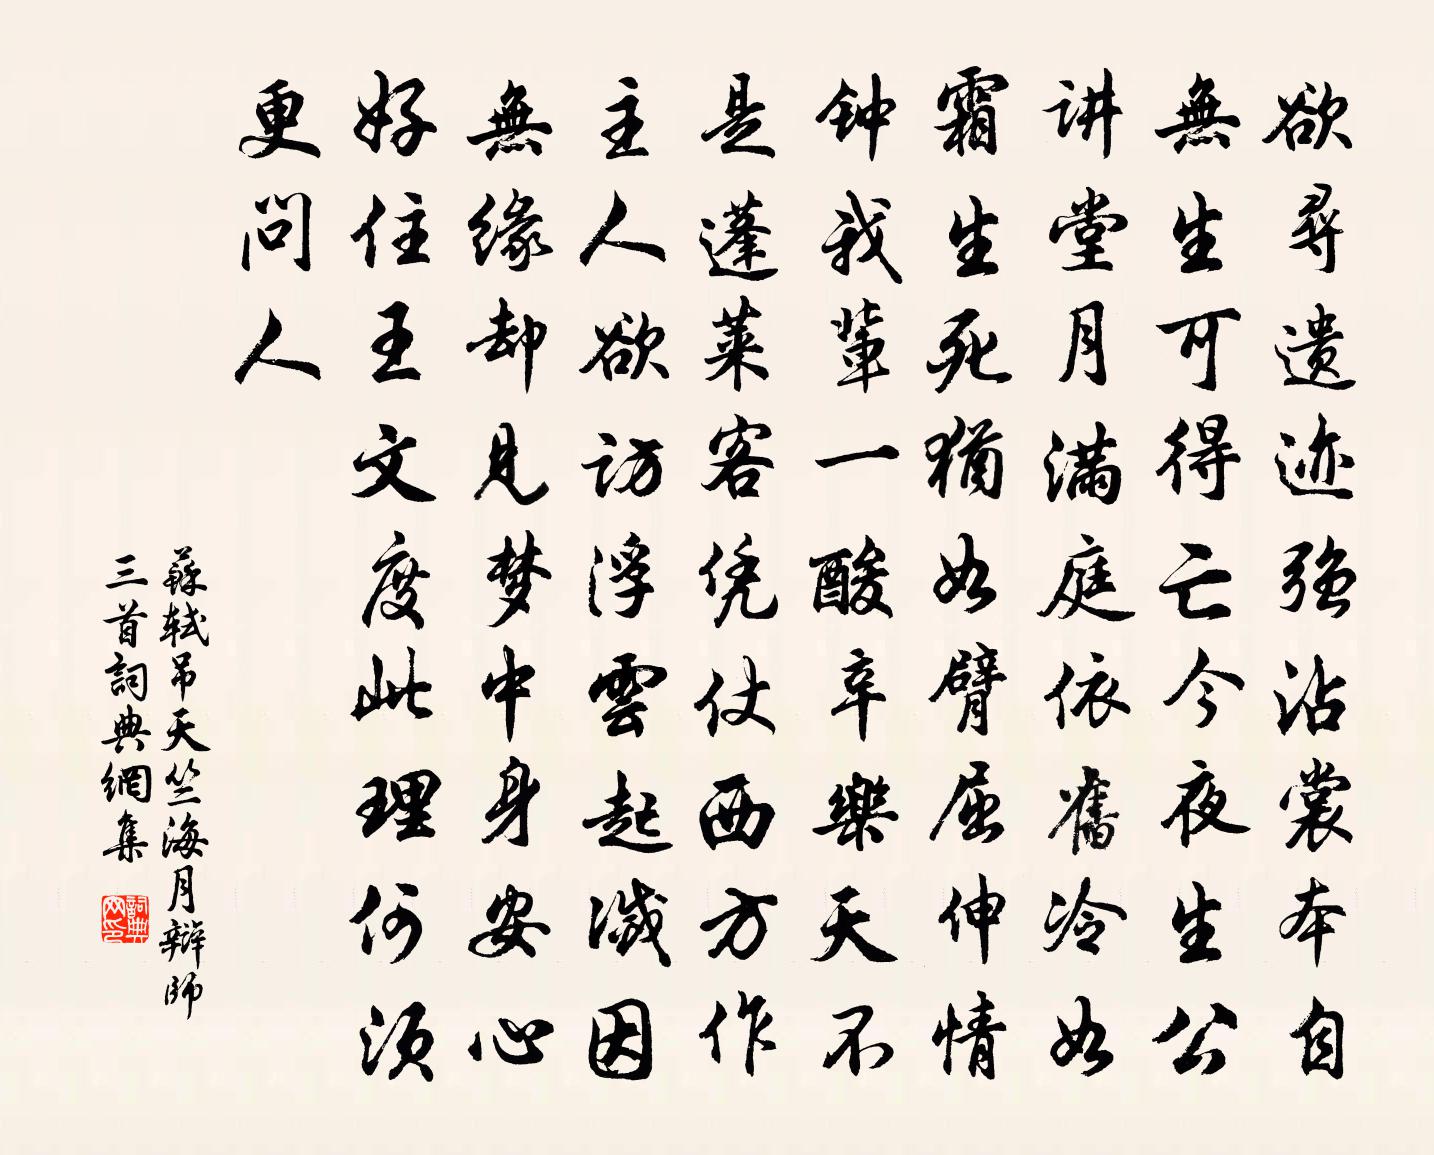 欲尋遗迹强沾裳本自
無生可得亡今夜生公
讲堂月满庭依舊冷如
霜生死猶如臂屈伸情
钟我輩一酸辛樂天不
是蓬莱客凭仗西方作
主人欲访浮雲起滅因
無缘却見梦中身安心
好住王文度此理何须
更问人
蘇轼吊天竺海月辯師
三首詞典網集
詞典网印